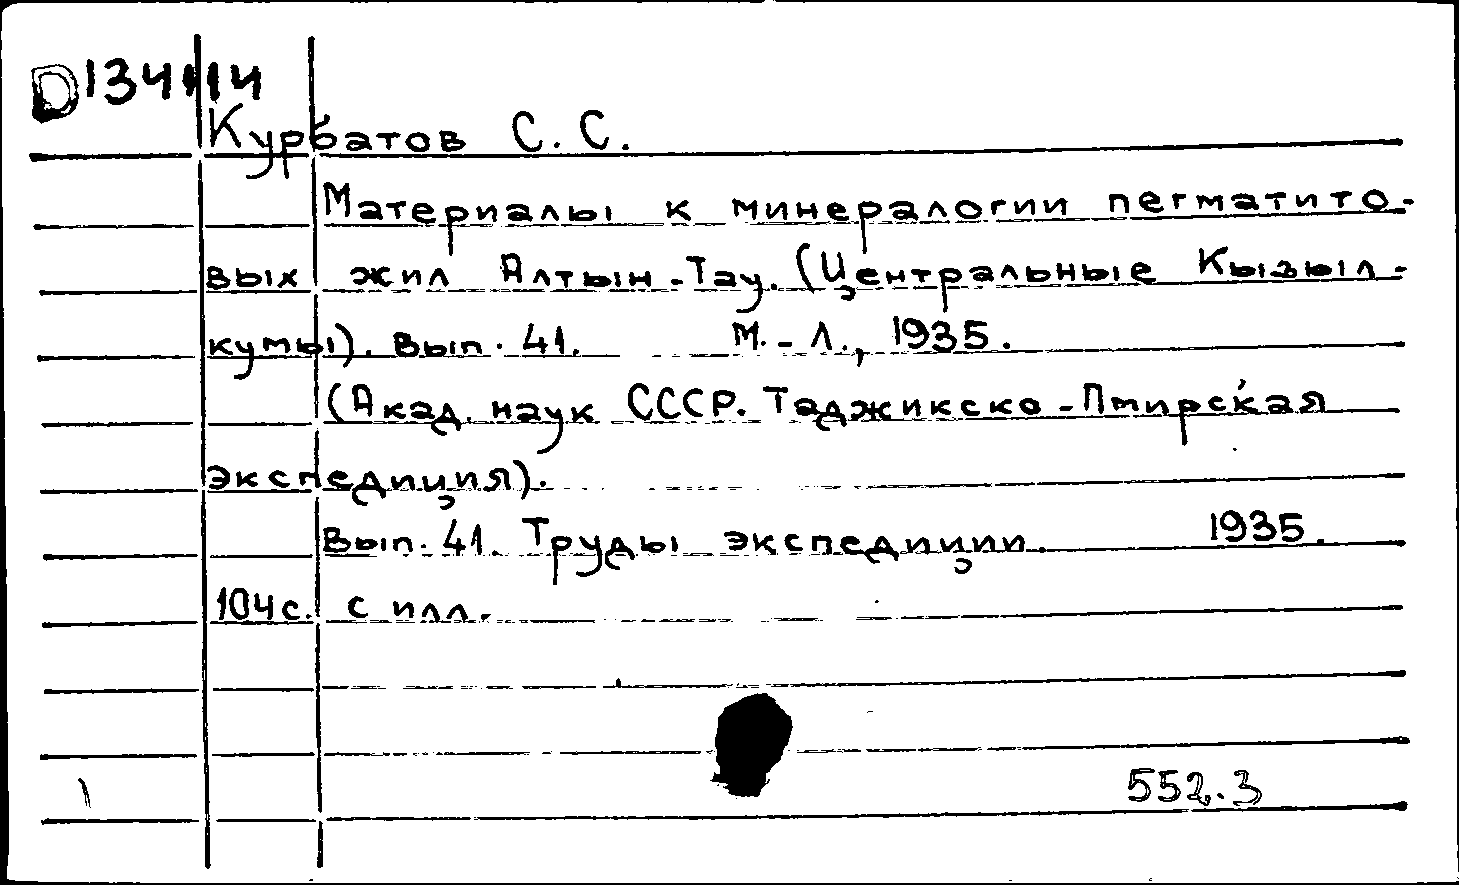 D134114
Курбатов С. С.
Материалы к минералогии пегматито-
вых жил Алтын-Тау. (Центральные Кызыл-
кумы). Вып. 41. М.-Л., 1935.
(Акад. наук СССР. Таджикско-Пмирская
экспедиция).
Вып. 41. Труды экспедиции. 1935.
104с. с илл.
552.3